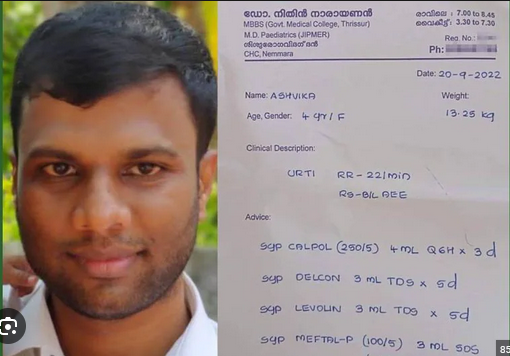 ഡോ. നിതിൻ നാരായണൻ
MBBS (Govt. Medical College, Thrissur)
M.D. Paediatrics (JIPMER)
ശിശുരോഗവിദഗ്ദൻ
CHC, Nemmara
രാവിലെ : 7.00 to 8.45
വൈകീട്ട് : 3.30 to 7.30
Reg. No.:
Ph:
Date: 20-9-2022
Name: ASHVIKA
Weight:
Age, Gender: 4 yr / F
13.25 kg
Clinical Description:
URTI RR - 22/min
RS - B/L AEE
Advice:
syp CALPOL (250/5) 4 mL Q6H x 3d
syp DELCON 3 mL TDS x 5d
syp LEVOLIN 3 mL TDS x 5d
syp MEFTAL-P (100/5) 3 mL SOS
85